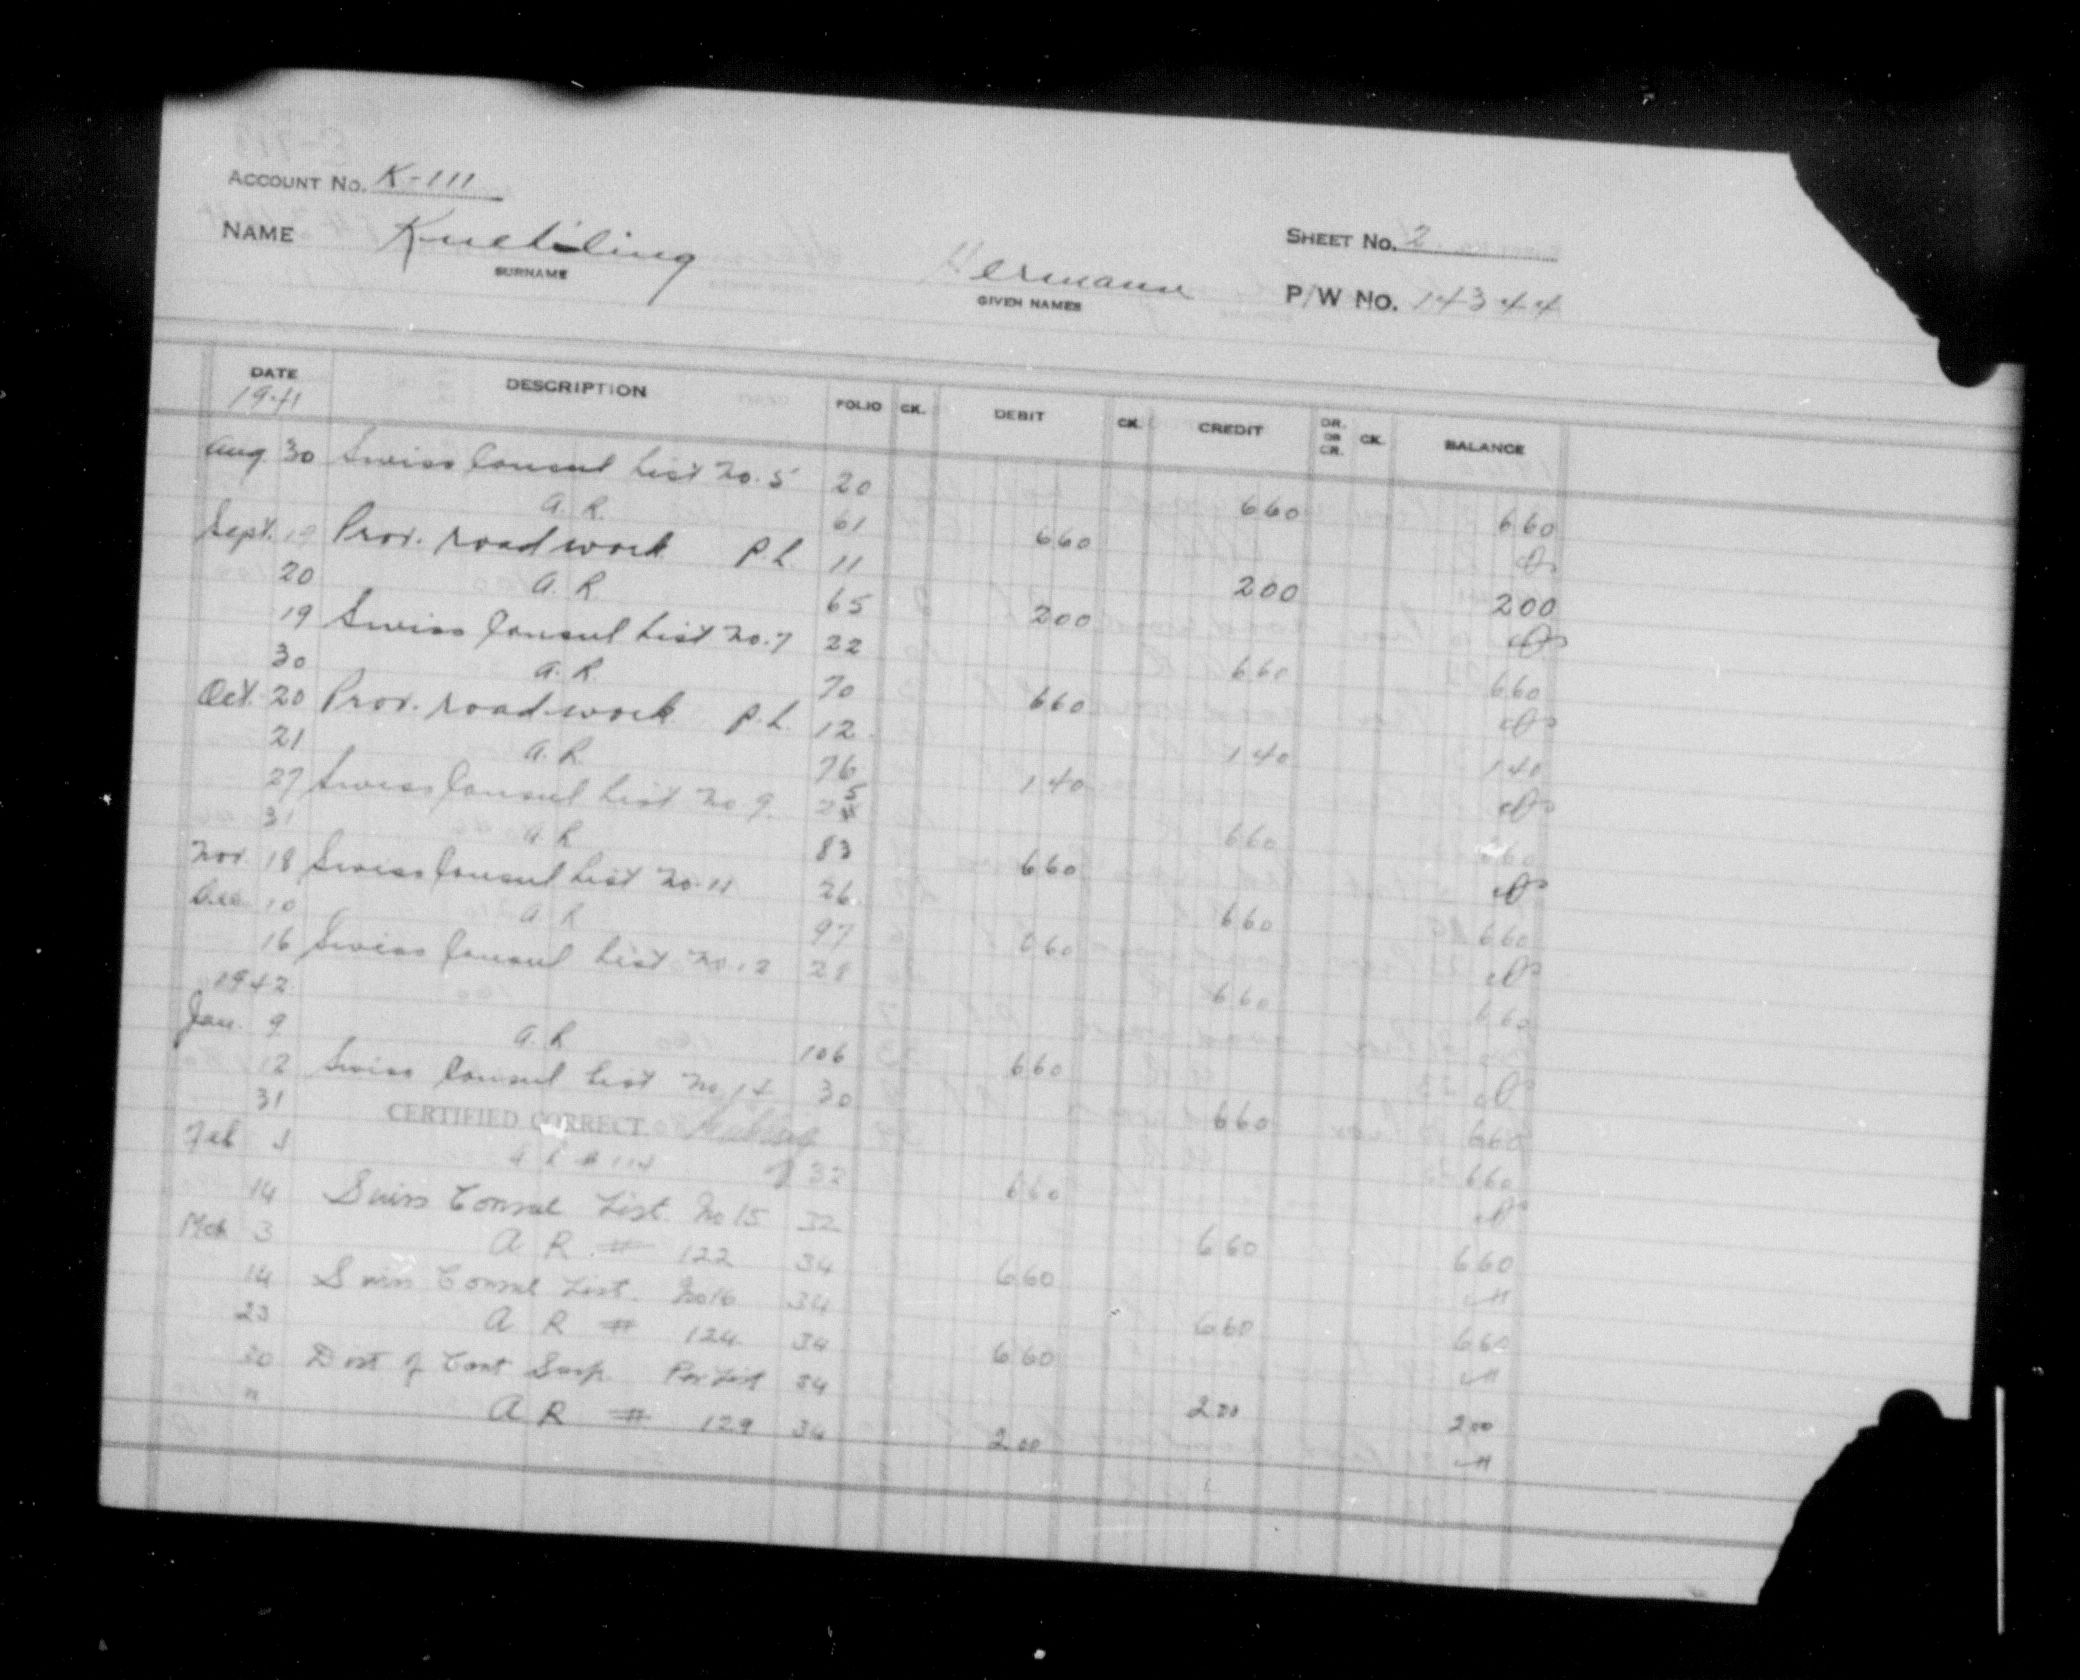 ACCOUNT No. K-111
NAME Kuehling Hermann SHEET No. 2
SURNAME GIVEN NAMES P/W No. 14344
DATE DESCRIPTION FOLIO CK. DEBIT CK. CREDIT DR. OR CR. CK. BALANCE
1941
Aug. 30 Swiss Consul List No. 5 20 660 660
A. R. 61 660 0
Sept. 19 Prov. road work P.L. 11 200 200
20 A. R. 65 200 0
19 Swiss Consul List No. 7 22 660 660
30 A. R. 70 660 0
Oct. 20 Prov. road work P.L. 12 140 140
21 A. R. 76 140 0
27 Swiss Consul List No 9. 25 660 660
31 A R 83 660 0
Nov. 18 Swiss Consul List No. 11 26 660 660
Dec. 10 A R 97 660 0
16 Swiss Consul List No. 12 28 660 660
1942
Jan. 9 A. R 106 660 0
12 Swiss Consul List No. 14 30 660 660
31 CERTIFIED CORRECT 660
Feb 3 A R # 114 32 660 0
14 Swiss Consul List No 15 32 660 660
Mch 3 A R # 122 34 660
14 Swiss Consul List. No 16 34 660 660
23 A R # 124 34 660
30 Dist of Cant Susp. Per List 34 200 200
" A R # 129 34 200